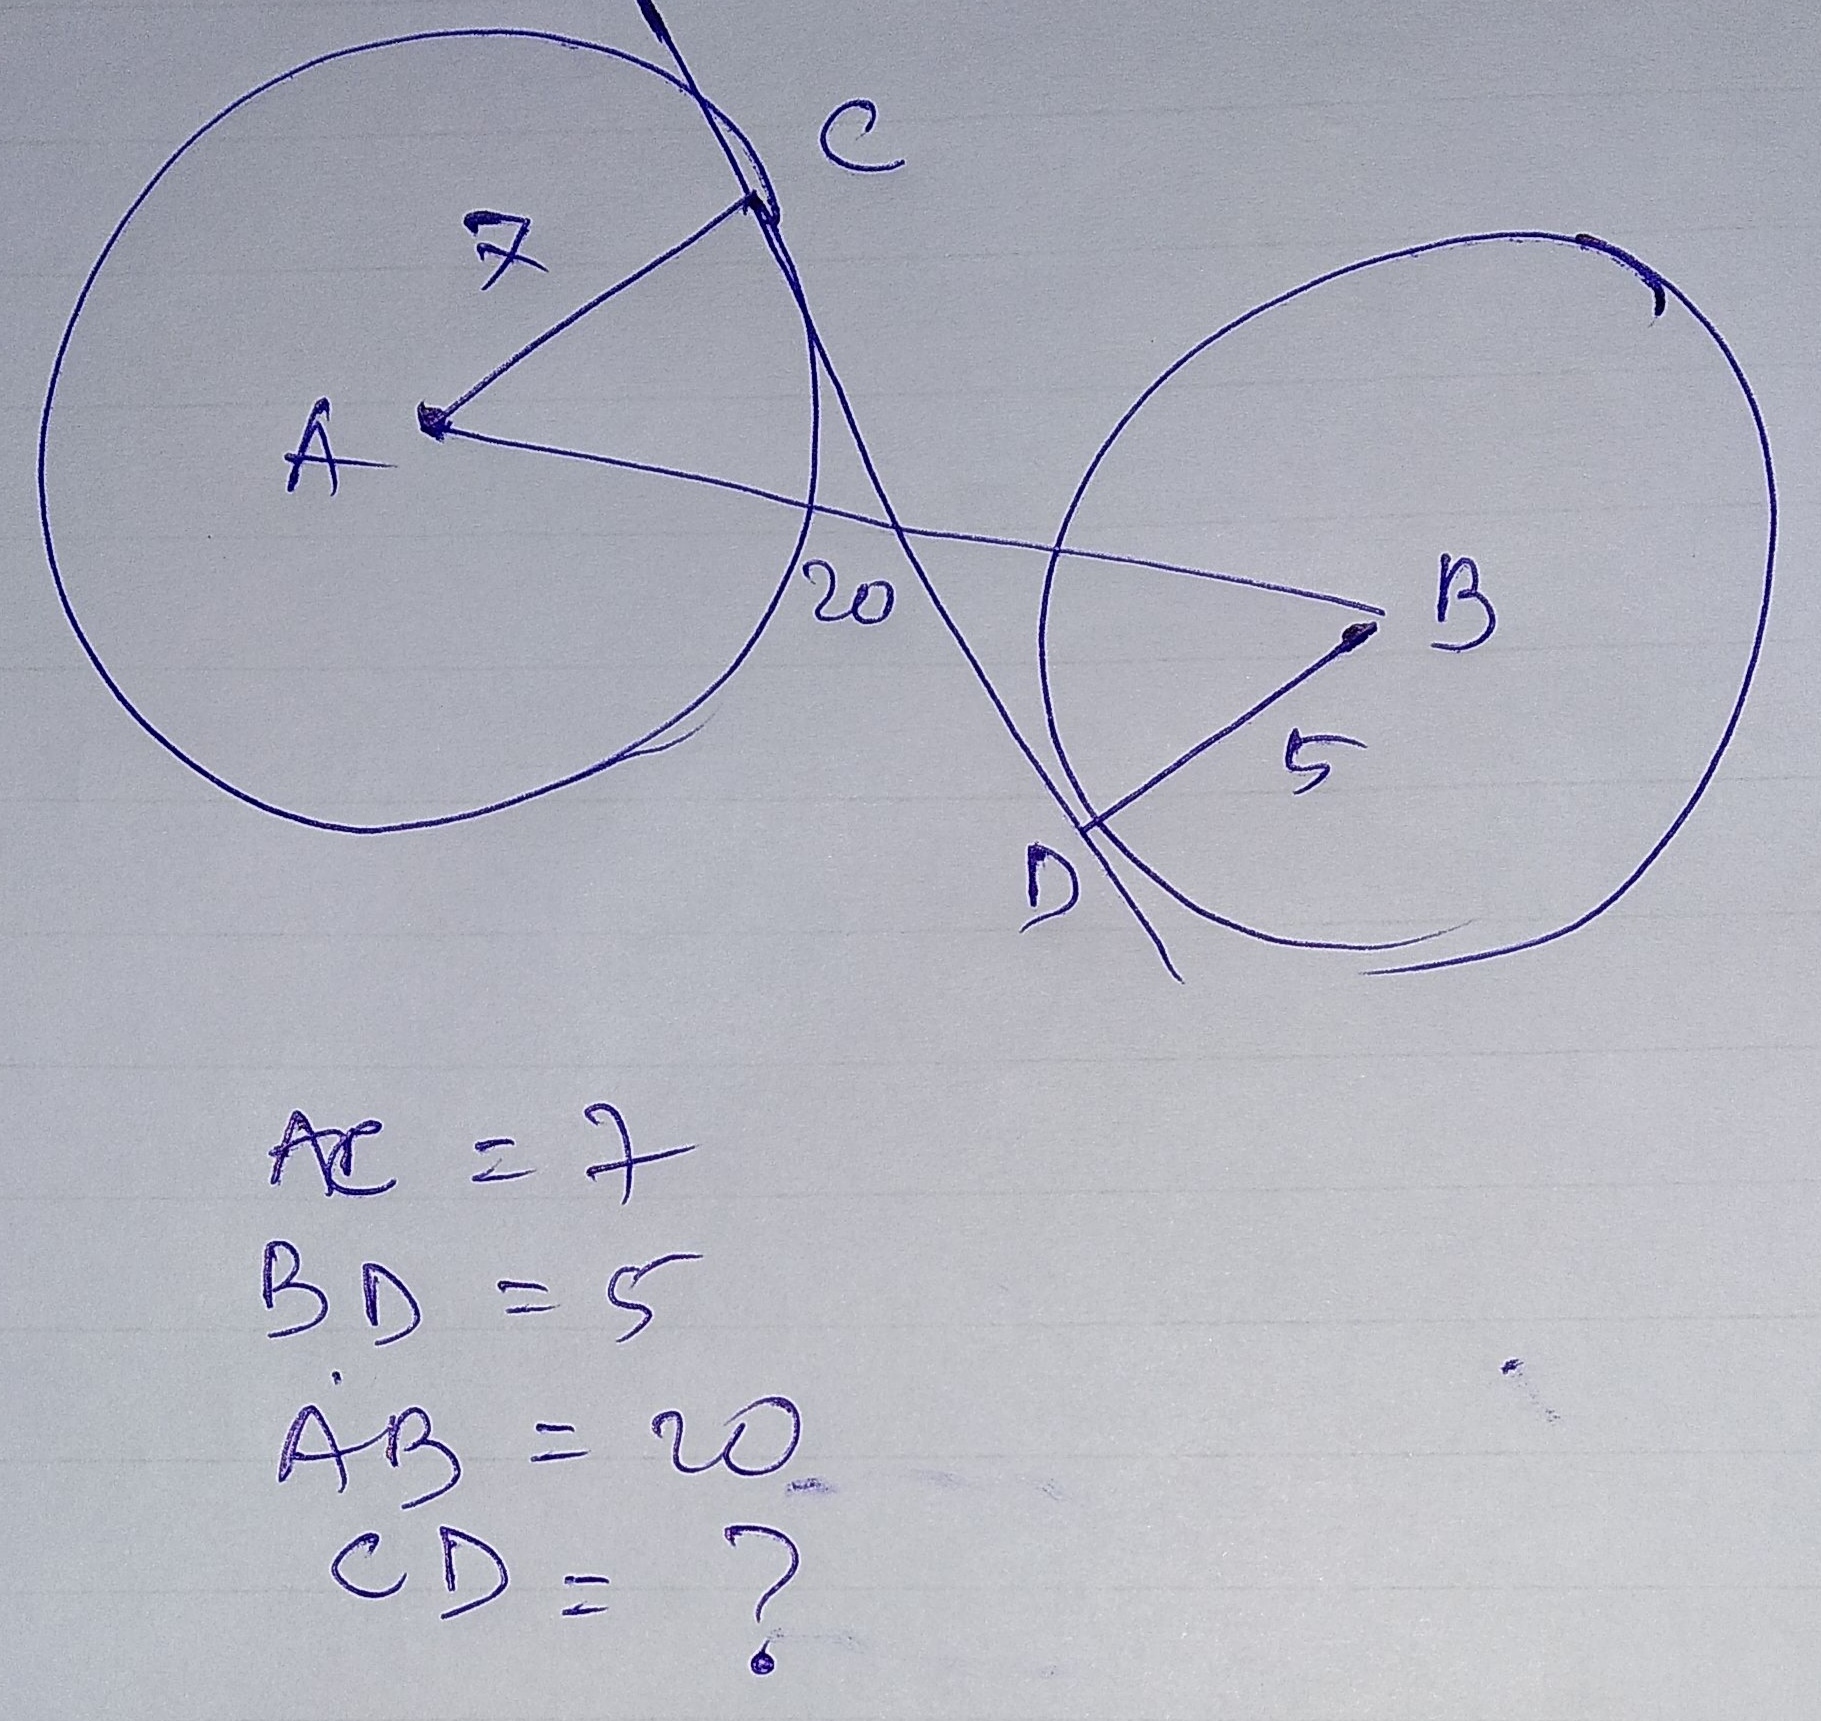 C
7
A
20
B
5
D
AC = 7
BD = 5
AB = 20
CD = ?